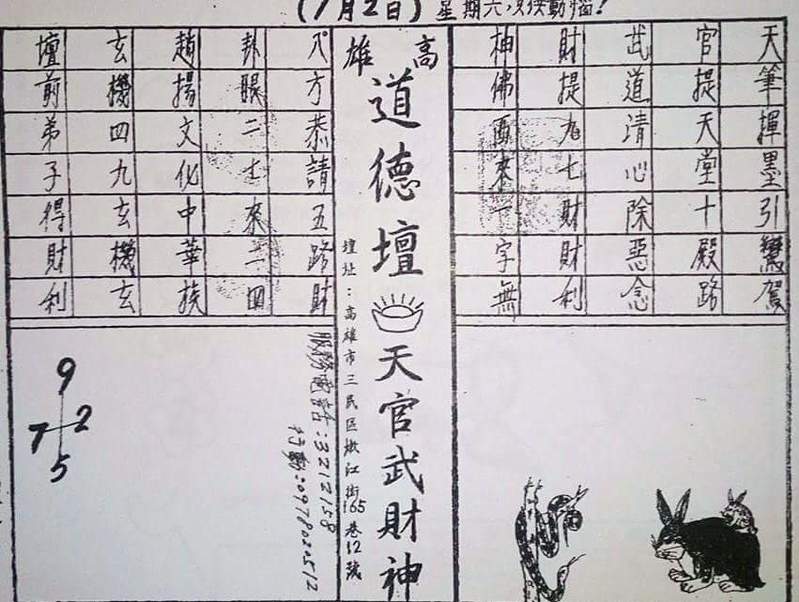 (7月2日) 星期六
天筆揮墨引鸞駕
官提天堂十殿路
武道清心除惡念
財提九七財財利
神佛西來一字無
高雄
道德壇
天官武財神
壇址：高雄市三民區嫩江街165巷12號
八方恭請五路財
卦眼二七來三四
趙揚文化中華族
玄機四九玄機玄
壇前弟子得財利
服務電話:3212158
行動:0978020512
9
7 2
5